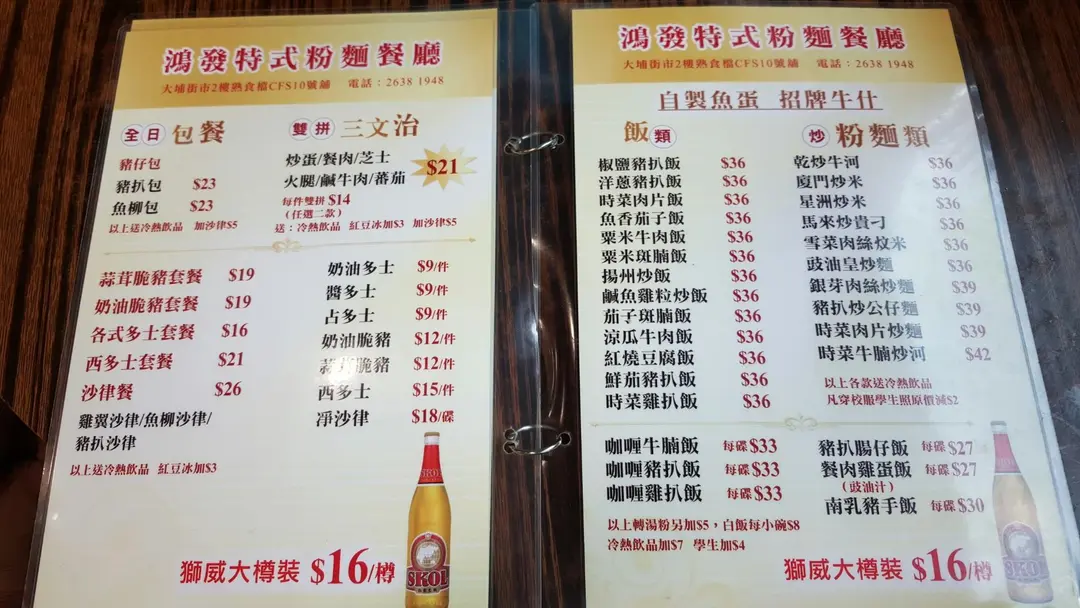 鴻發特式粉麵餐廳
大埔街市2樓熟食檔CFS10號舖 電話:2638 1948
全日 包餐
豬仔包
豬扒包 $23
魚柳包 $23
以上送冷熱飲品 加沙律$5
雙拼 三文治
炒蛋/餐肉/芝士
火腿/鹹牛肉/蕃茄
$21
每件雙拼 $14
(任選二款)
送:冷熱飲品 紅豆冰加$3 加沙律$5
蒜茸脆豬套餐 $19
奶油脆豬套餐 $19
各式多士套餐 $16
西多士套餐 $21
沙律餐 $26
雞翼沙律/魚柳沙律/
豬扒沙律
以上送冷熱飲品 紅豆冰加$3
奶油多士 $9/件
醬多士 $9/件
占多士 $9/件
奶油脆豬 $12/件
蒜茸脆豬 $12/件
西多士 $15/件
淨沙律 $18/碟
獅威大樽裝 $16/樽
SKOL
鴻發特式粉麵餐廳
大埔街市2樓熟食檔CFS10號舖 電話:2638 1948
自製魚蛋 招牌牛什
飯類
椒鹽豬扒飯 $36
洋蔥豬扒飯 $36
時菜肉片飯 $36
魚香茄子飯 $36
粟米牛肉飯 $36
粟米斑腩飯 $36
揚州炒飯 $36
鹹魚雞粒炒飯 $36
茄子斑腩飯 $36
涼瓜牛肉飯 $36
紅燒豆腐飯 $36
鮮茄豬扒飯 $36
時菜雞扒飯 $36
炒 粉麵類
乾炒牛河 $36
廈門炒米 $36
星洲炒米 $36
馬來炒貴刁 $36
雪菜肉絲炆米 $36
豉油皇炒麵 $36
銀芽肉絲炒麵 $39
豬扒炒公仔麵 $39
時菜肉片炒麵 $39
時菜牛腩炒河 $42
以上各款送冷熱飲品
凡穿校服學生照原價減$2
咖喱牛腩飯 每碟$33
咖喱豬扒飯 每碟$33
咖喱雞扒飯 每碟$33
豬扒腸仔飯 每碟$27
餐肉雞蛋飯 每碟$27
(豉油汁)
南乳豬手飯 每碟$30
以上轉湯粉另加$5,白飯每小碗$8
冷熱飲品加$7 學生加$4
獅威大樽裝 $16/樽
SKOL